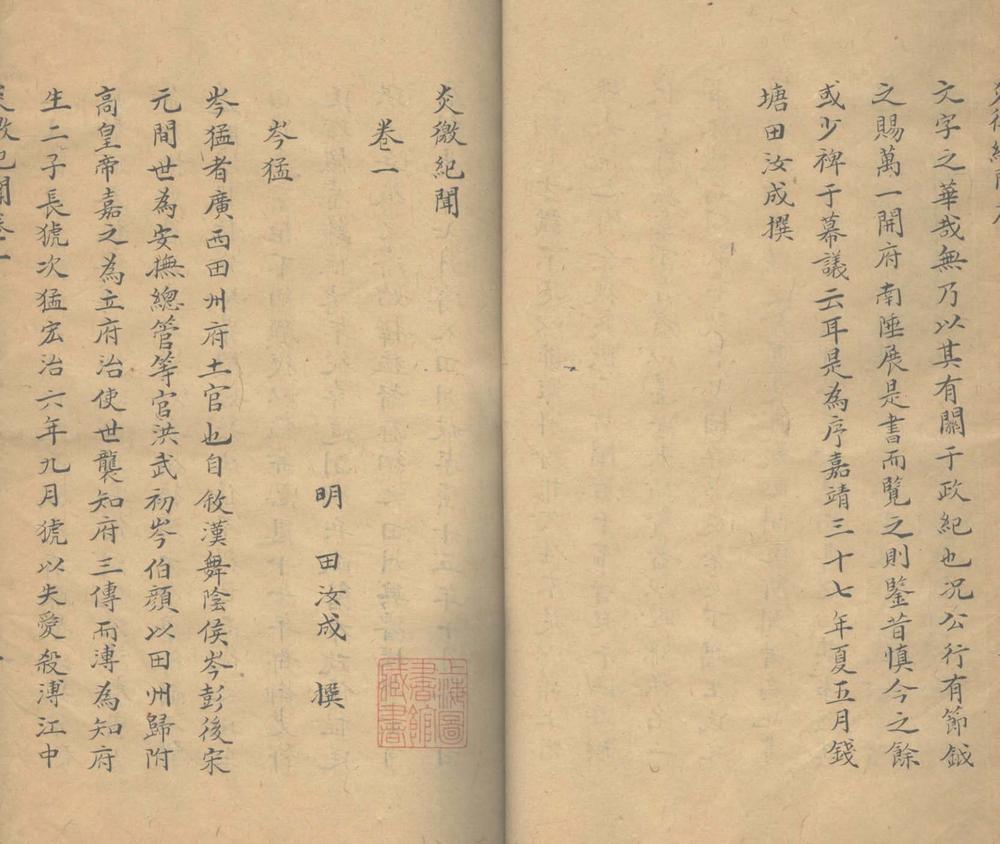 文字之華哉無乃以其有關于政紀也况公行有節鉞
之賜萬一開府南陲展是書而覽之則鑒昔慎今之餘
或少裨于幕議云耳是為序嘉靖三十七年夏五月錢
塘田汝成撰
炎徼紀聞
卷一
明 田汝成 撰
上海圖書館藏書
岑猛
岑猛者廣西田州府土官也自敘漢舞陰侯岑彭後宋
元間世為安撫總管等官洪武初岑伯顔以田州歸附
高皇帝嘉之為立府治使世襲知府三傳而溥為知府
生二子長猇次猛宏治六年九月猇以失愛殺溥江中